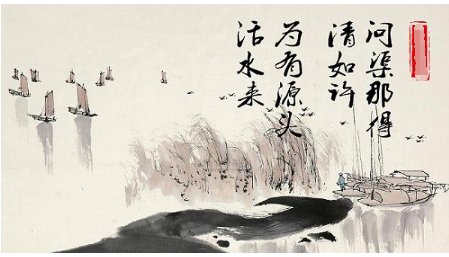 问渠那得
清如许
为有源头
活水来